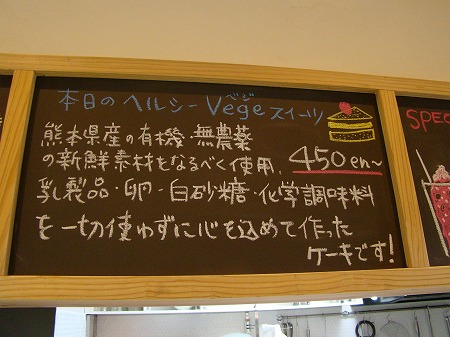 本日のヘルシーVegeスイーツ
ベジ
熊本県産の有機・無農薬
の新鮮素材をなるべく使用。
450en~
乳製品・卵・白砂糖・化学調味料
を一切使わずに心を込めて作った
ケーキです!
SPEC